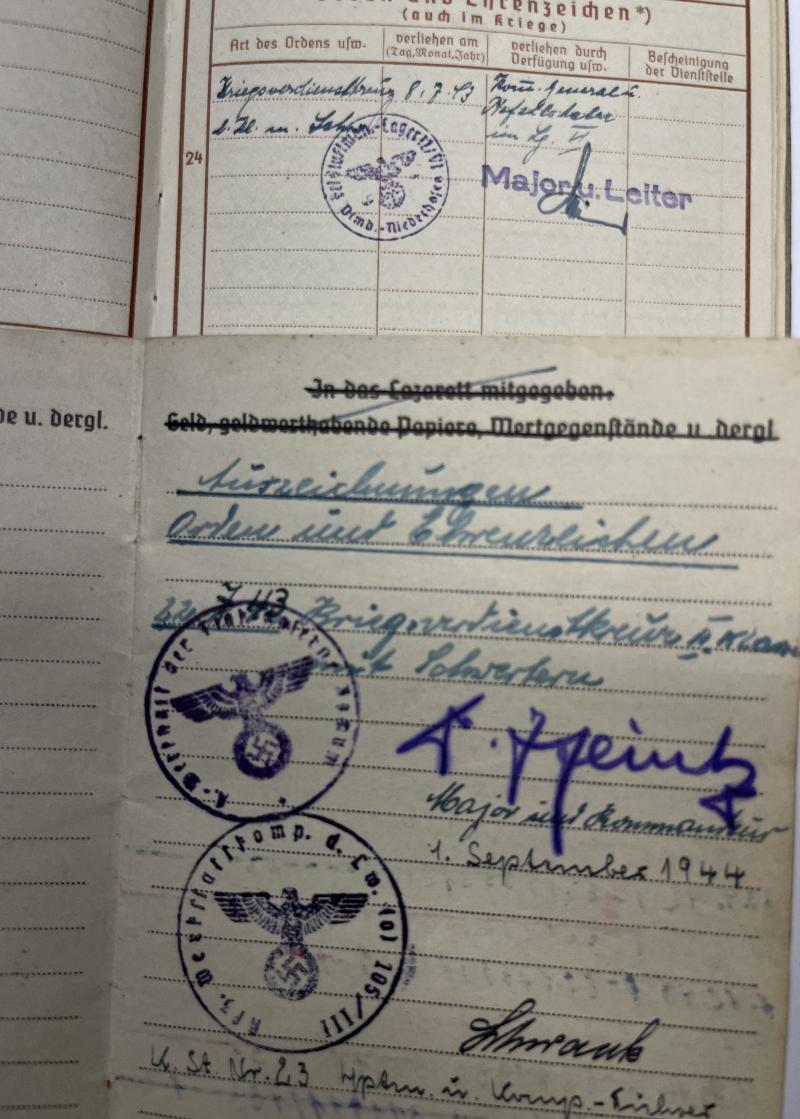 Ehrenzeichen*)
(auch im Kriege)
Art des Ordens usw.
verliehen am
(Tag, Monat, Jahr)
verliehen durch
Verfügung usw.
Bescheinigung
der Dienststelle
24
Kriegsverdienstkreuz 8.7.43 Kom. General u.
Befehlshaber
II. Kl. m. Schw.
im Lg. VI
Dtmd.-Niederhofen
Major u. Leiter
de u. dergl.
In das Lazarett mitgegeben.
Geld, geldwerthabende Papiere, Wertgegenstände u. dergl
Auszeichnungen
Orden und Ehrenzeichen
7.43 Kriegsverdienstkreuz II. Klasse
mit Schwertern
Major und Kommandeur
1. September 1944
Kfz. Werkstattkomp. d. Lw. (o) 105/III
Schrank
K. St. Nr. 23 Hptm. u. Komp.-Führer